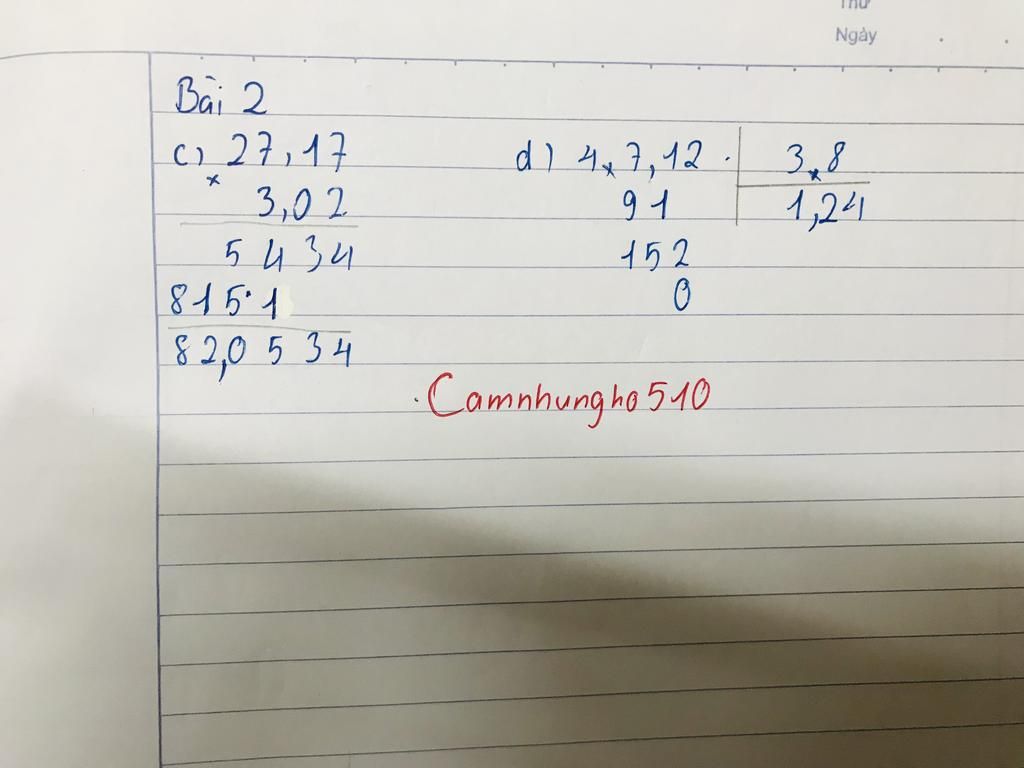 Thứ
Ngày
Bài 2
c) 27,17
x
3,02
5 4 3 4
8 1 5 1
82,0 5 3 4
d) 4x7,12
3x8
91
1,24
152
0
Camnhungho510